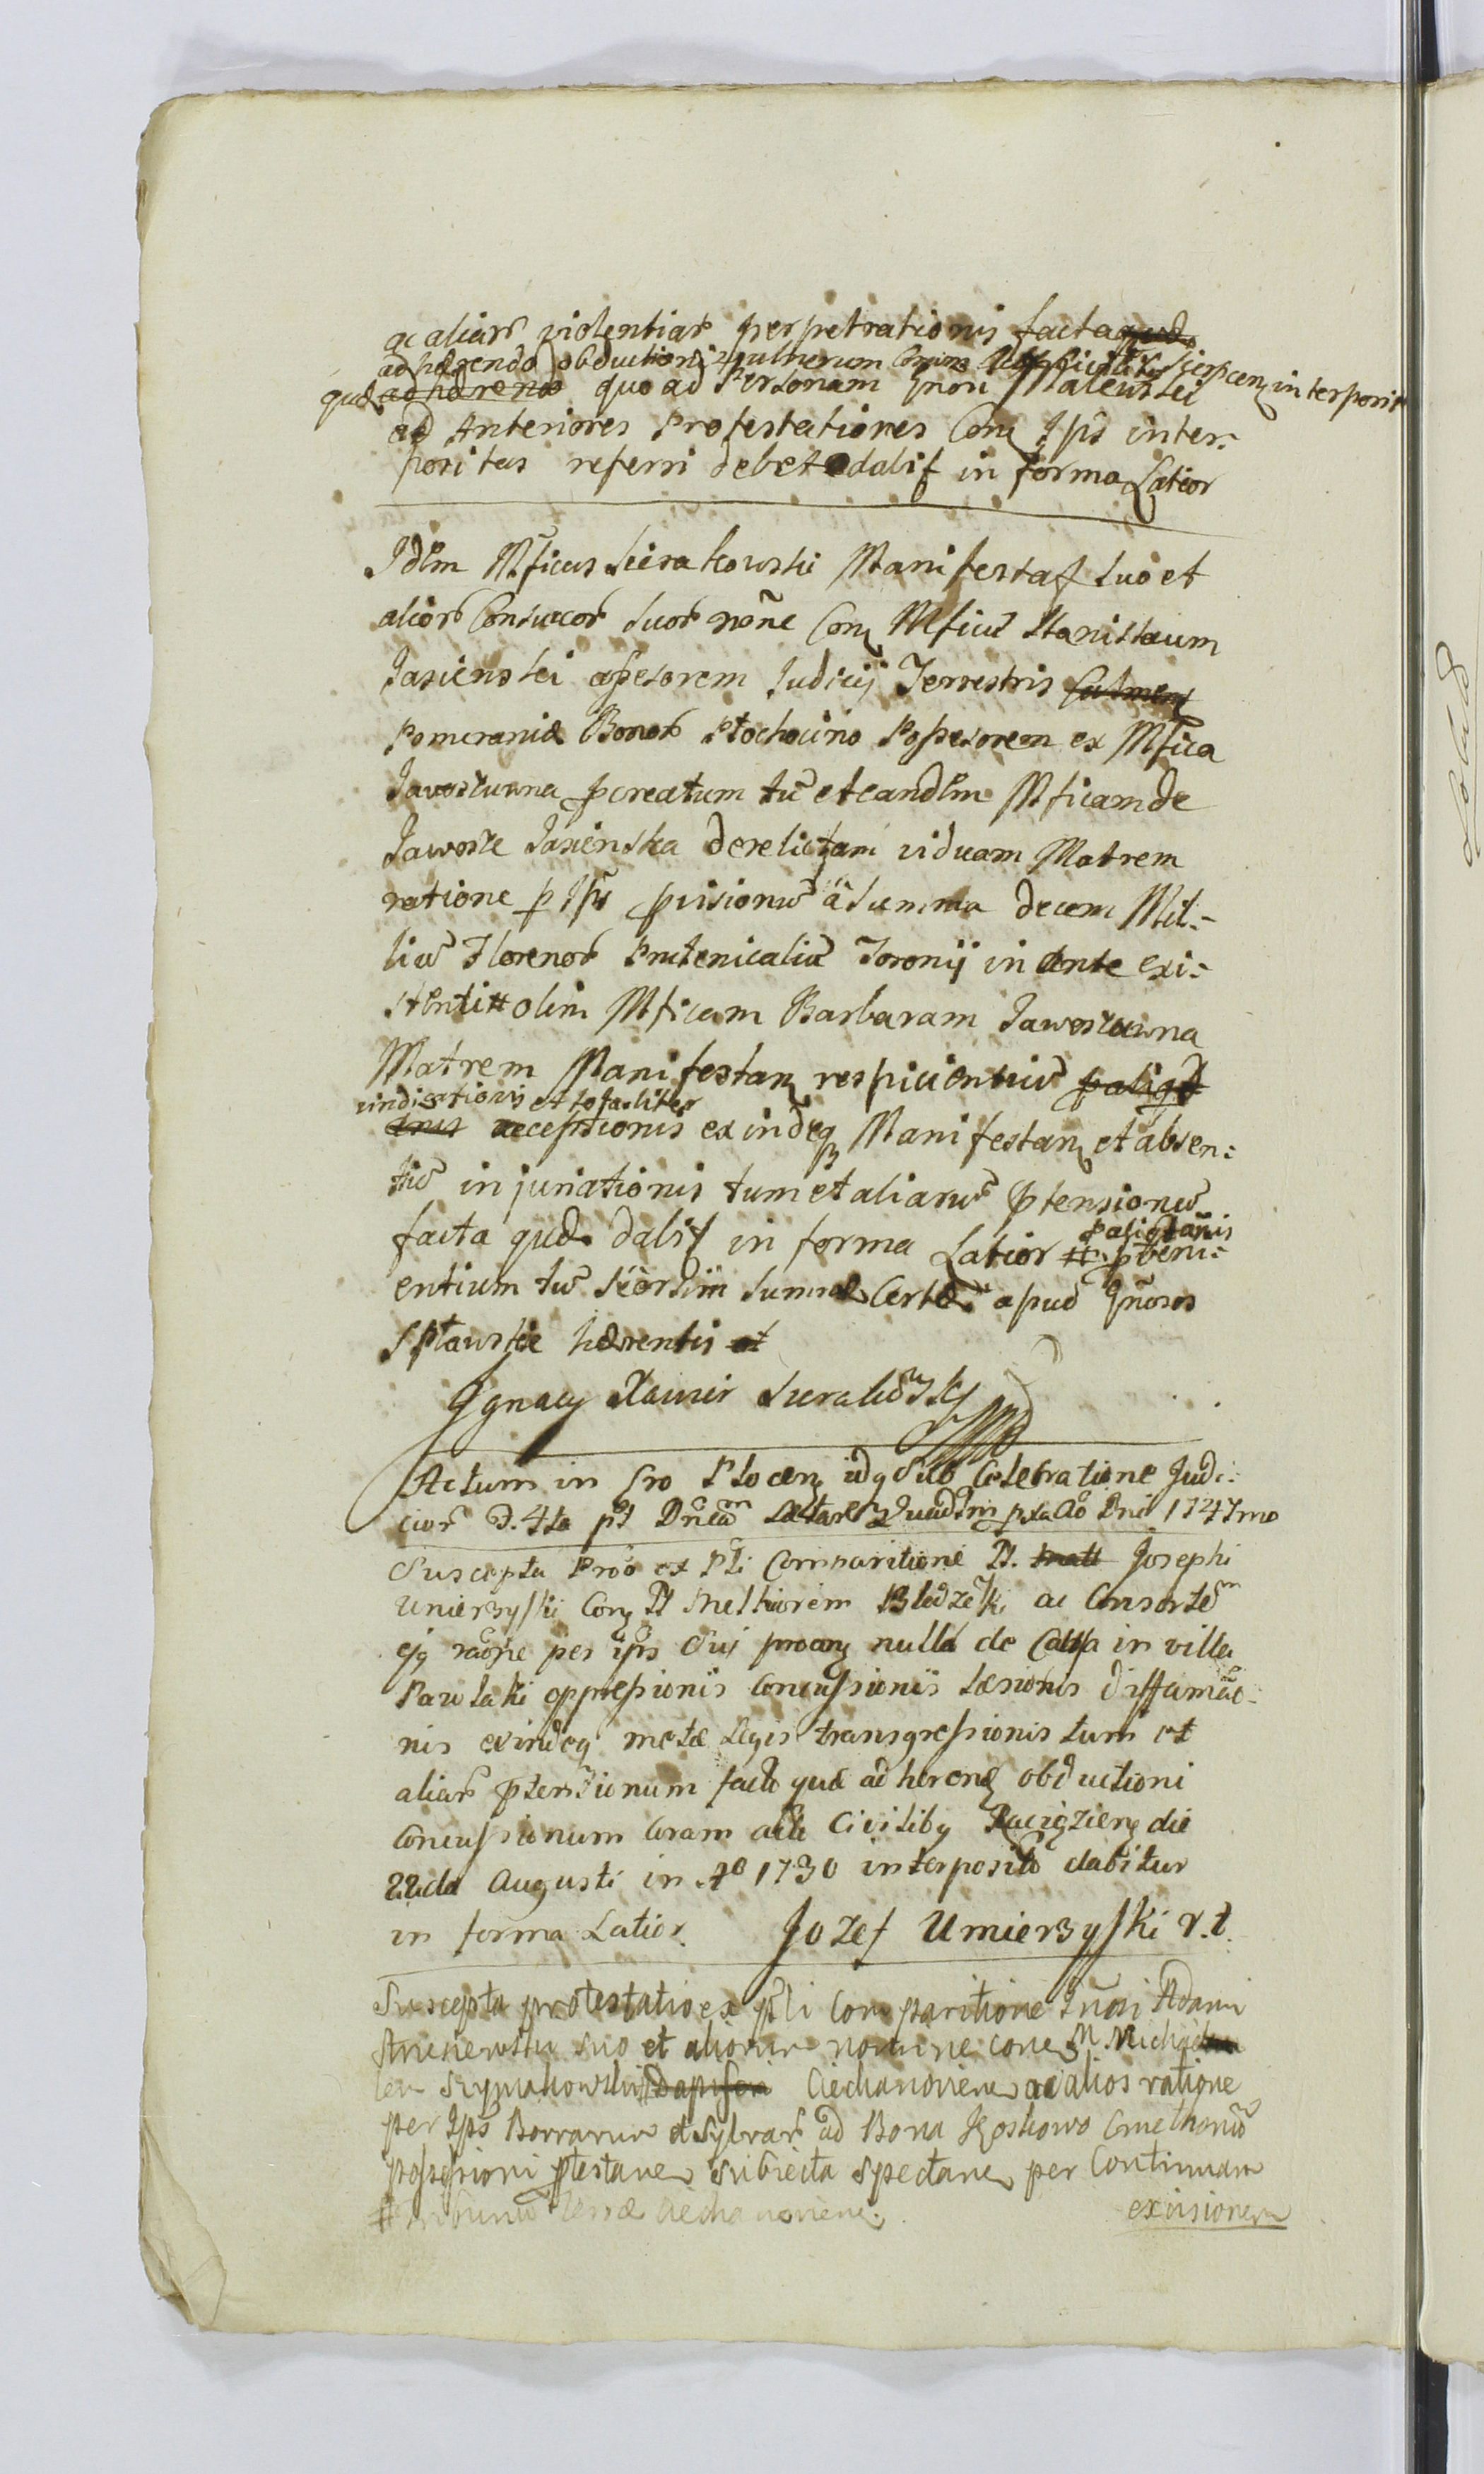 ac aliar violentiar perpetrationis facta quæ
adhærendo obductioni vulnerum Coram Sierpcen interposit
quæ adhæren quo ad Personam Gnosi
ad Anteriores Protestationes Con Ips inter=
positas referri debet dabit in forma Latior
Idem Mficus Sierakowski Manifestat suo et
alior Consuccor suor noñe Con Mficu Stanislaum
Jasienski assesorem Judicij Terrestris Culmen
Pomeraniæ Bonor Płochocino Possesorem ex Mfica
Jaworzuwna pcreatum tu et eandem Mficam de
Jaworze Jasienska derelictam viduam Matrem
ratione p Ips pvisionu a summa decem Mil=
liu Florenor Prutenicaliu Toronij in ente exi=
stenti # olim Mficam Barbaram Jaworzuwna
Matrem Manifestan respicientiu
vindicationis et totaliter
acceptionis exindeq Manifestan et absen=
tiu injuriationis tum et aliaru ptensionu
facta quæ dabit in forma Latior # pveni=
entium tu seorsim summæ Certæ apud Gnosos
Spławskie hærentis et
Ignacy Xawier Sierakowsky
Actum in Cro Plocen idq sub Celebratione Judi=
cior F. 4ta pt Dncam Lætare Quadrm pxa Ao Dni 1747mo
Suscepta Prõo ex Pli Comparitione P. Josephi
Umierzyski Con P Melhiorem Bledzki ac Consortem
ejq raõne per ips sui procan nulla de Causa in villa
Pawłaki oppressionis Concussionis læsionis diffamao=
nis exindeq metæ Legis transgressionis tum et
aliar ptensionum facta quæ adheren obductioni
Concussionum Coram actis Civilibq Raciązien die
22da Augusti in Ao 1730 interposito dabitur
in forma Latior. Jozef Umierzyski r.t.
Suscepta protestatio ex pli Comparitione Gnosi Adami
suo et alioru nomine con M Michae
lem Szymakowski Dapifer Ciechanovien ac alios ratione
per Ips Borrarum et Sylvar ad Bona Koskowo Cmethonu
possessioni ptestan subiecta spectan per Continuam
# Tribunu Terræ Ciechanovien. excisionem